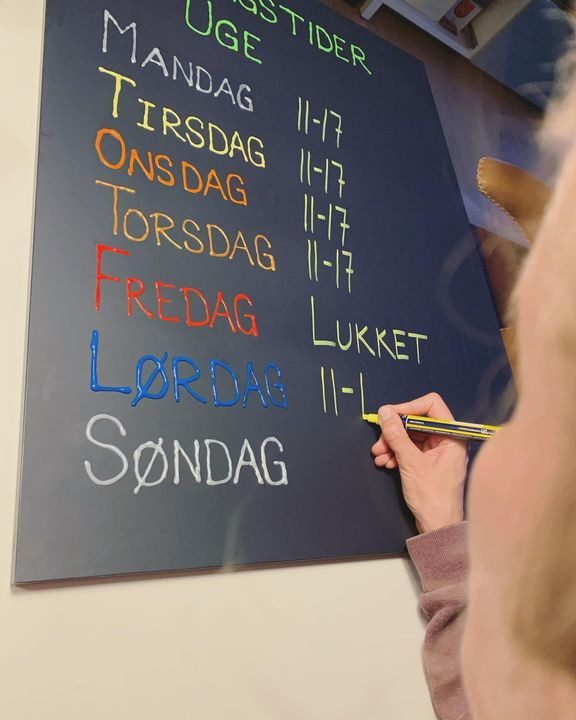 UGE
MANDAG 11-17
TIRSDAG 11-17
ONSDAG 11-17
TORSDAG 11-17
FREDAG LUKKET
LØRDAG 11-1
SØNDAG